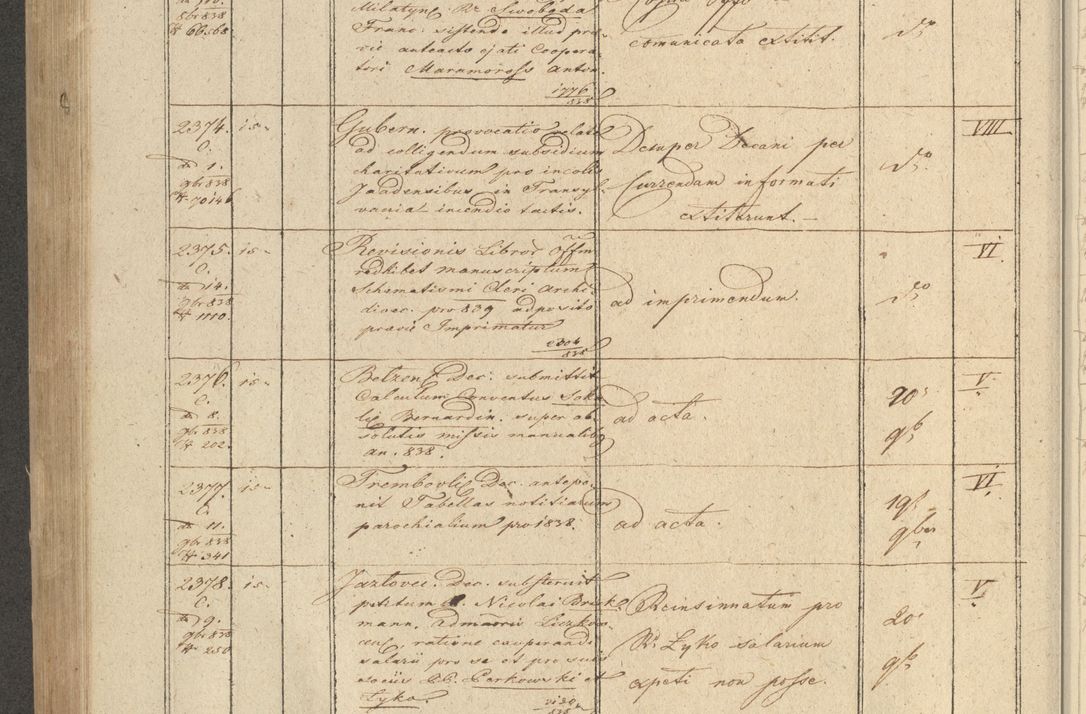 8br 838
№ 6668
Milatyn. Rr. Swoboda
Franc. sistendo illud pro-
vie anteacto ejati Coopera-
tori Maramoross Anton.
1776/838
comunicata extitit.
do
2374. 15
C.
dto 1.
9br 838
№ 70146
Gubern. provocatio relate
ad colligendum subsidium
charitativum pro incolis
Jaadensibus in Transyl-
vania incendio tactis.
Desuper Decani per
Currendam informati
extiterunt.
do
VIII
2375. 15
C.
dto 14.
9br 838
№ 1110.
Revisionis Libror. Offm
redhibet manuscriptum
Schematismi Cleri Archi-
dioec. pro 839 adposito
praevie Imprimatur
2304/838
ad imprimendum.
do
VI
2376. 15
C.
dto 8.
9br 838
№ 202.
Belzen. Dec. submittit
Calculum Conventus Soka-
lis Bernardin. super ab-
solutis missis manualibg
an. 838.
ad acta.
20
9b
V
2377. 15
C.
dto 11.
9br 838
№ 341
Trembovlis Dec. antepo-
nit Tabellas notitiarum
parochialium pro 1838.
ad acta.
19
9ber
VI
2378. 15
C.
dto 9.
9br 838
№ 250
Jazlovec. Dec. substernit
petitum Nicolai Brick-
mann, Admoris Liczkow-
ce, ratione cooperandi
salarii pro se et pro suis
sociis Perkowski et
Lyko.
838
Reinsinnatum pro
Rr. Lyko salarium
expeti non posse.
20
9b
V